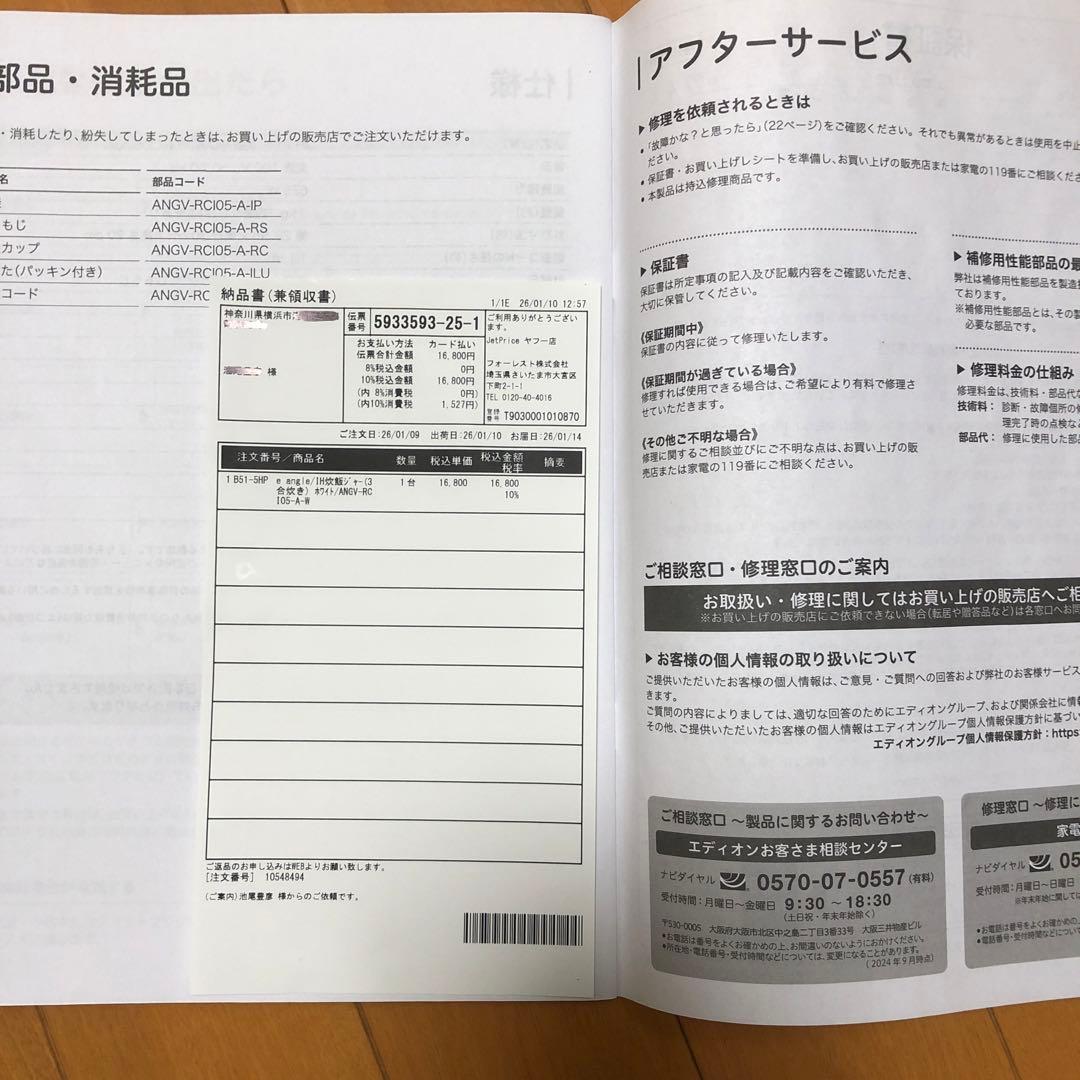 部品・消耗品
・消耗したり、紛失してしまったときは、お買い上げの販売店でご注文いただけます。
名 部品コード
ANGV-RCI05-A-IP
もじ ANGV-RCI05-A-RS
カップ ANGV-RCI05-A-RC
た(パッキン付き) ANGV-RCI05-A-ILU
コード ANGV-RC
納品書(兼領収書)
1/1E 26/01/10 12:57
神奈川県横浜市
様
伝票番号 5933593-25-1
お支払い方法 カード払い
伝票合計金額 16,800円
8%税込金額 0円
10%税込金額 16,800円
(内 8%消費税 0円)
(内10%消費税 1,527円)
ご利用ありがとうございます。
JetPrice ヤフー店
フォーレスト株式会社
埼玉県さいたま市大宮区
下町2-1-1
TEL 0120-40-4016
登録番号 T9030001010870
ご注文日:26/01/09 出荷日:26/01/10 お届日:26/01/14
注文番号/商品名 数量 税込単価 税込金額 税率 摘要
1 B51-5HP e angle/IH炊飯ジャー(3 1台 16,800 16,800
合炊き) ホワイト/ANGV-RC 10%
I05-A-W
ご返品のお申し込みはWEBよりお願い致します。
[注文番号] 10548494
(ご案内)池尾豊彦 様からのご依頼です。
アフターサービス
▶修理を依頼されるときは
•「故障かな?と思ったら」(22ページ)をご確認ください。それでも異常があるときは使用を中止
ださい。
•保証書・お買い上げレシートを準備し、お買い上げの販売店または家電の119番にご相談くださ
•本製品は持込修理商品です。
▶保証書
保証書は所定事項の記入及び記載内容をご確認いただき、
大切に保管してください。
《保証期間中》
保証書の内容に従って修理いたします。
《保証期間が過ぎている場合》
修理すれば使用できる場合は、ご希望により有料で修理さ
せていただきます。
《その他ご不明な場合》
修理に関するご相談並びにご不明な点は、お買い上げの販
売店または家電の119番にご相談ください。
▶補修用性能部品の最
弊社は補修用性能部品を製造打
ております。
※補修用性能部品とは、その製
必要な部品です。
▶修理料金の仕組み
修理料金は、技術料・部品代な
技術料: 診断・故障個所の修
理完了時の点検など
部品代: 修理に使用した部品
ご相談窓口・修理窓口のご案内
お取扱い・修理に関してはお買い上げの販売店へご相
※お買い上げの販売店にご依頼できない場合(転居や贈答品など)は各窓口へお問
▶お客様の個人情報の取り扱いについて
ご提供いただいたお客様の個人情報は、ご意見・ご質問への回答および弊社のお客様サービス
きます。
ご質問の内容によりましては、適切な回答のためにエディオングループ、および関係会社に情報
その他、ご提供いただいたお客様の個人情報はエディオングループ個人情報保護方針に基づい
エディオングループ個人情報保護方針:https:
ご相談窓口 ～製品に関するお問い合わせ～
エディオンお客さま相談センター
ナビダイヤル 0570-07-0557(有料)
受付時間:月曜日～金曜日 9:30 ～ 18:30
(土日祝・年末年始除く)
〒530-0005 大阪府大阪市北区中之島二丁目3番33号 大阪三井物産ビル
●お電話は番号をよくお確かめの上、お間違いのないようにおかけください。
●所在地・電話番号・受付時間などについては、変更になることがあります。
(2024年9月時点)
修理窓口 ～修理に
家電
ナビダイヤル 05
受付時間:月曜日～日曜日
※年末年始に関して
●お電話は番号をよくお確かめの
●電話番号・受付時間などについて